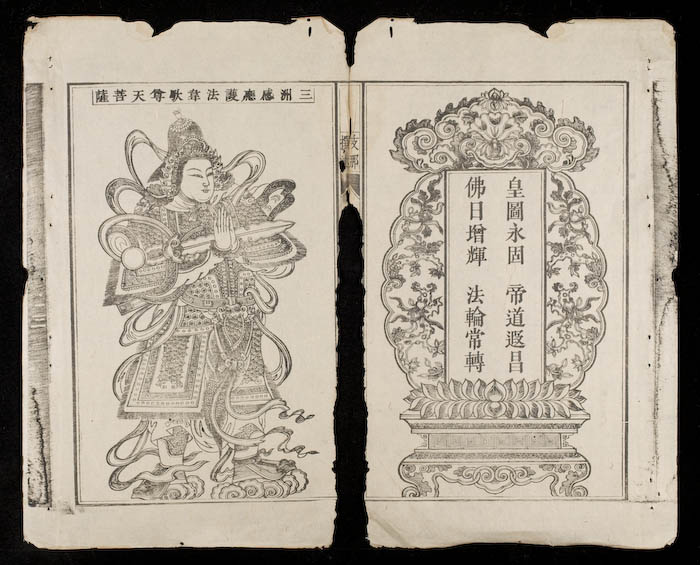 皇圖永固 帝道遐昌
佛日增輝 法輪常轉
三洲感應護法韋馱尊天菩薩